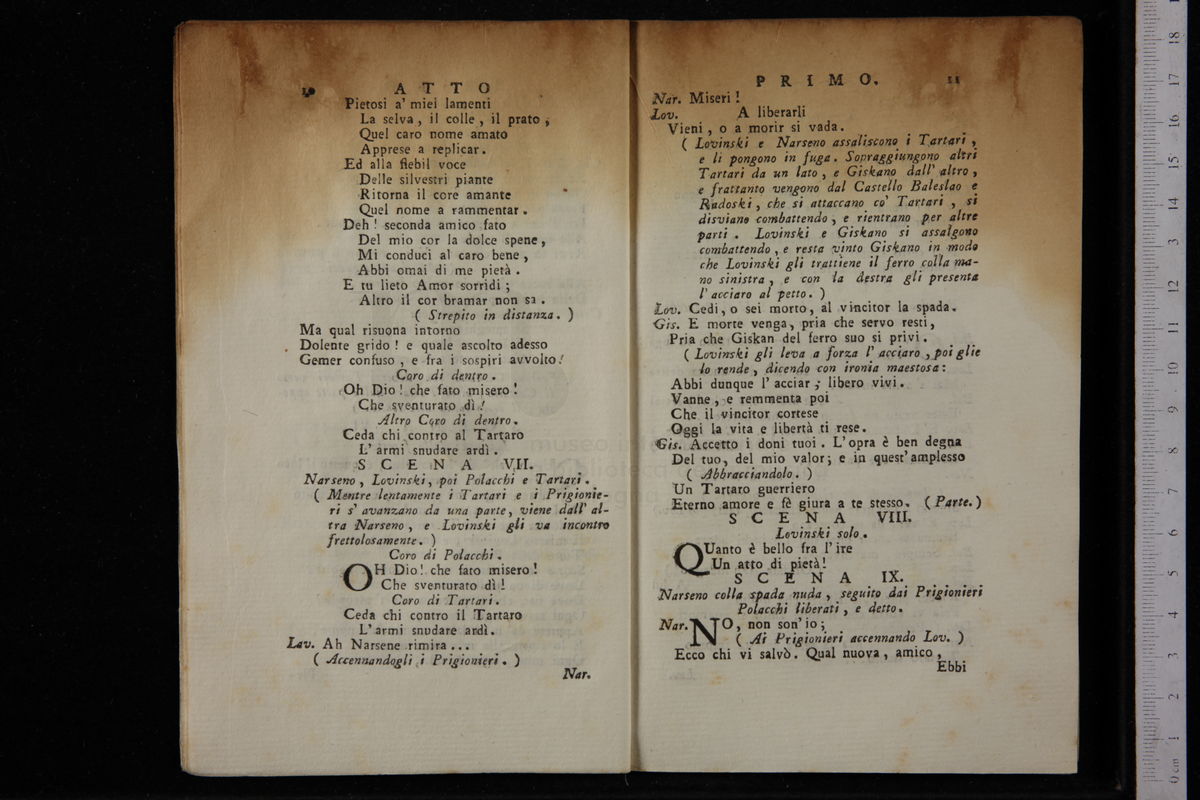 10 ATTO
Pietosi a' miei lamenti
La selva, il colle, il prato;
Quel caro nome amato
Apprese a replicar.
Ed alla flebil voce
Delle silvestri piante
Ritorna il core amante
Quel nome a rammentar.
Deh! seconda amico fato
Del mio cor la dolce spene,
Mi conduci al caro bene,
Abbi omai di me pietà.
E tu lieto Amor sorridi;
Altro il cor bramar non sa.
( Strepito in distanza. )
Ma qual risuona intorno
Dolente grido! e quale ascolto adesso
Gemer confuso, e fra i sospiri avvolto!
Coro di dentro.
Oh Dio! che fato misero!
Che sventurato dì!
Altro Coro di dentro.
Ceda chi contro al Tartaro
L'armi snudare ardì.
SCENA VII.
Narseno, Lovinski, poi Polacchi e Tartari.
( Mentre lentamente i Tartari e i Prigionie-
ri s'avanzano da una parte, viene dall'al-
tra Narseno, e Lovinski gli va incontro
frettolosamente. )
Coro di Polacchi.
OH Dio! che fato misero!
Che sventurato dì!
Coro di Tartari.
Ceda chi contro il Tartaro
L'armi snudare ardì.
Lav. Ah Narsene rimira...
( Accennandogli i Prigionieri. )
Nar.
PRIMO. 11
Nar. Miseri!
Lov. A liberarli
Vieni, o a morir si vada.
( Lovinski e Narseno assaliscono i Tartari,
e li pongono in fuga. Sopraggiungono altri
Tartari da un lato, e Giskano dall'altro,
e frattanto vengono dal Castello Baleslao e
Radoski, che si attaccano co' Tartari, si
disviano combattendo, e rientrano per altre
parti. Lovinski e Giskano si assalgono
combattendo, e resta vinto Giskano in modo
che Lovinski gli trattiene il ferro colla ma-
no sinistra, e con la destra gli presenta
l'acciaro al petto. )
Lov. Cedi, o sei morto, al vincitor la spada.
Gis. E morte venga, pria che servo resti,
Pria che Giskan del ferro suo si privi.
( Lovinski gli leva a forza l'acciaro, poi glie
lo rende, dicendo con ironia maestosa:
Abbi dunque l'acciar; libero vivi.
Vanne, e remmenta poi
Che il vincitor cortese
Oggi la vita e libertà ti rese.
Gis. Accetto i doni tuoi. L'opra è ben degna
Del tuo, del mio valor; e in quest'amplesso
( Abbracciandolo. )
Un Tartaro guerriero
Eterno amore e fè giura a te stesso. ( Parte. )
SCENA VIII.
Lovinski solo.
QUanto è bello fra l'ire
Un atto di pietà!
SCENA IX.
Narseno colla spada nuda, seguito dai Prigionieri
Polacchi liberati, e detto.
Nar. NO, non son'io;
( Ai Prigionieri accennando Lov. )
Ecco chi vi salvò. Qual nuova, amico,
Ebbi